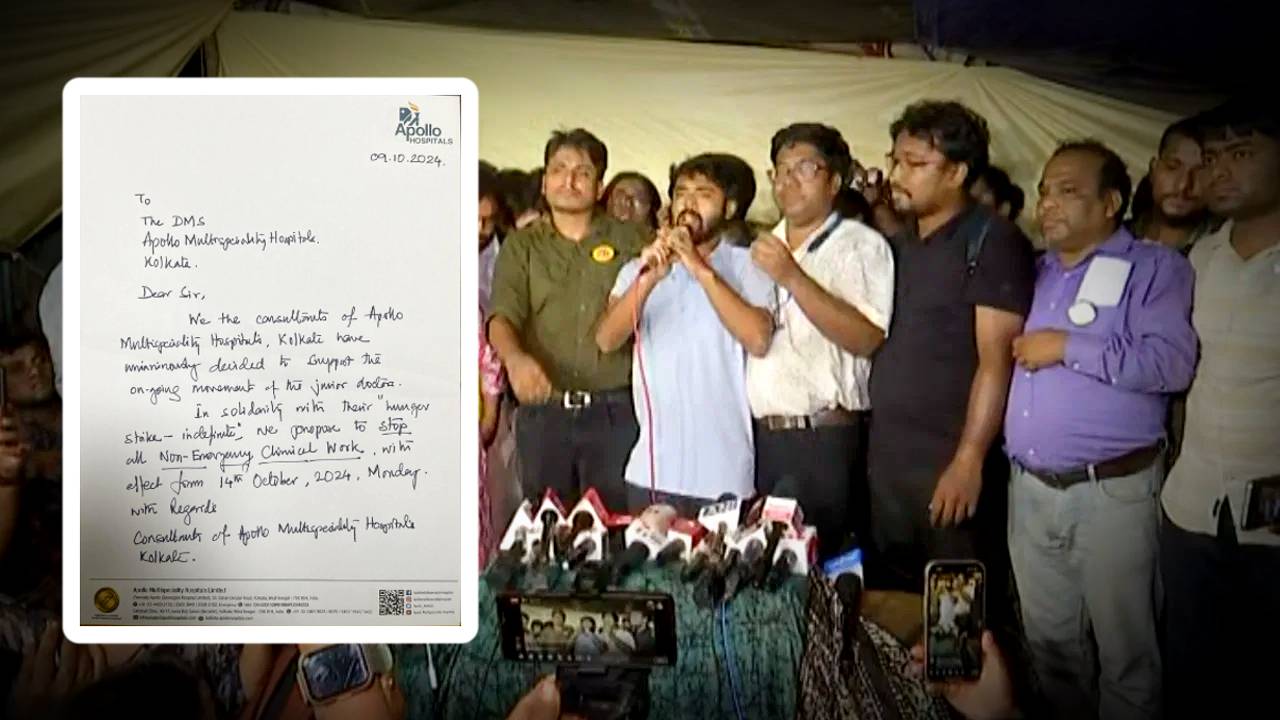 Apollo
HOSPITALS
09.10.2024.
To
The DMS
Apollo Multispeciality Hospitals.
Kolkata.
Dear Sir,
We the consultants of Apollo
Multispeciality Hospitals, Kolkata have
unanimously decided to support the
on-going movement of the junior doctors.
In solidarity with their "hunger
strike - indefinite", we propose to stop
all Non-Emergency Clinical Work, with
effect from 14th October, 2024, Monday.
with Regards
Consultants of Apollo Multispeciality Hospitals
Kolkata.
Apollo Multispeciality Hospitals Limited